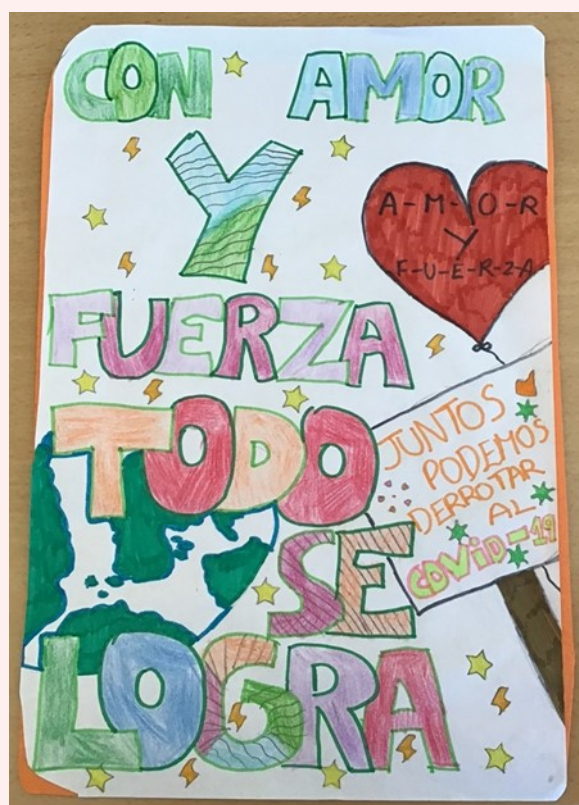 CON AMOR
Y
FUERZA
TODO
SE
LOGRA
A-M-O-R
Y
F-U-E-R-Z-A
JUNTOS
PODEMOS
DERROTAR
AL
COVID-19